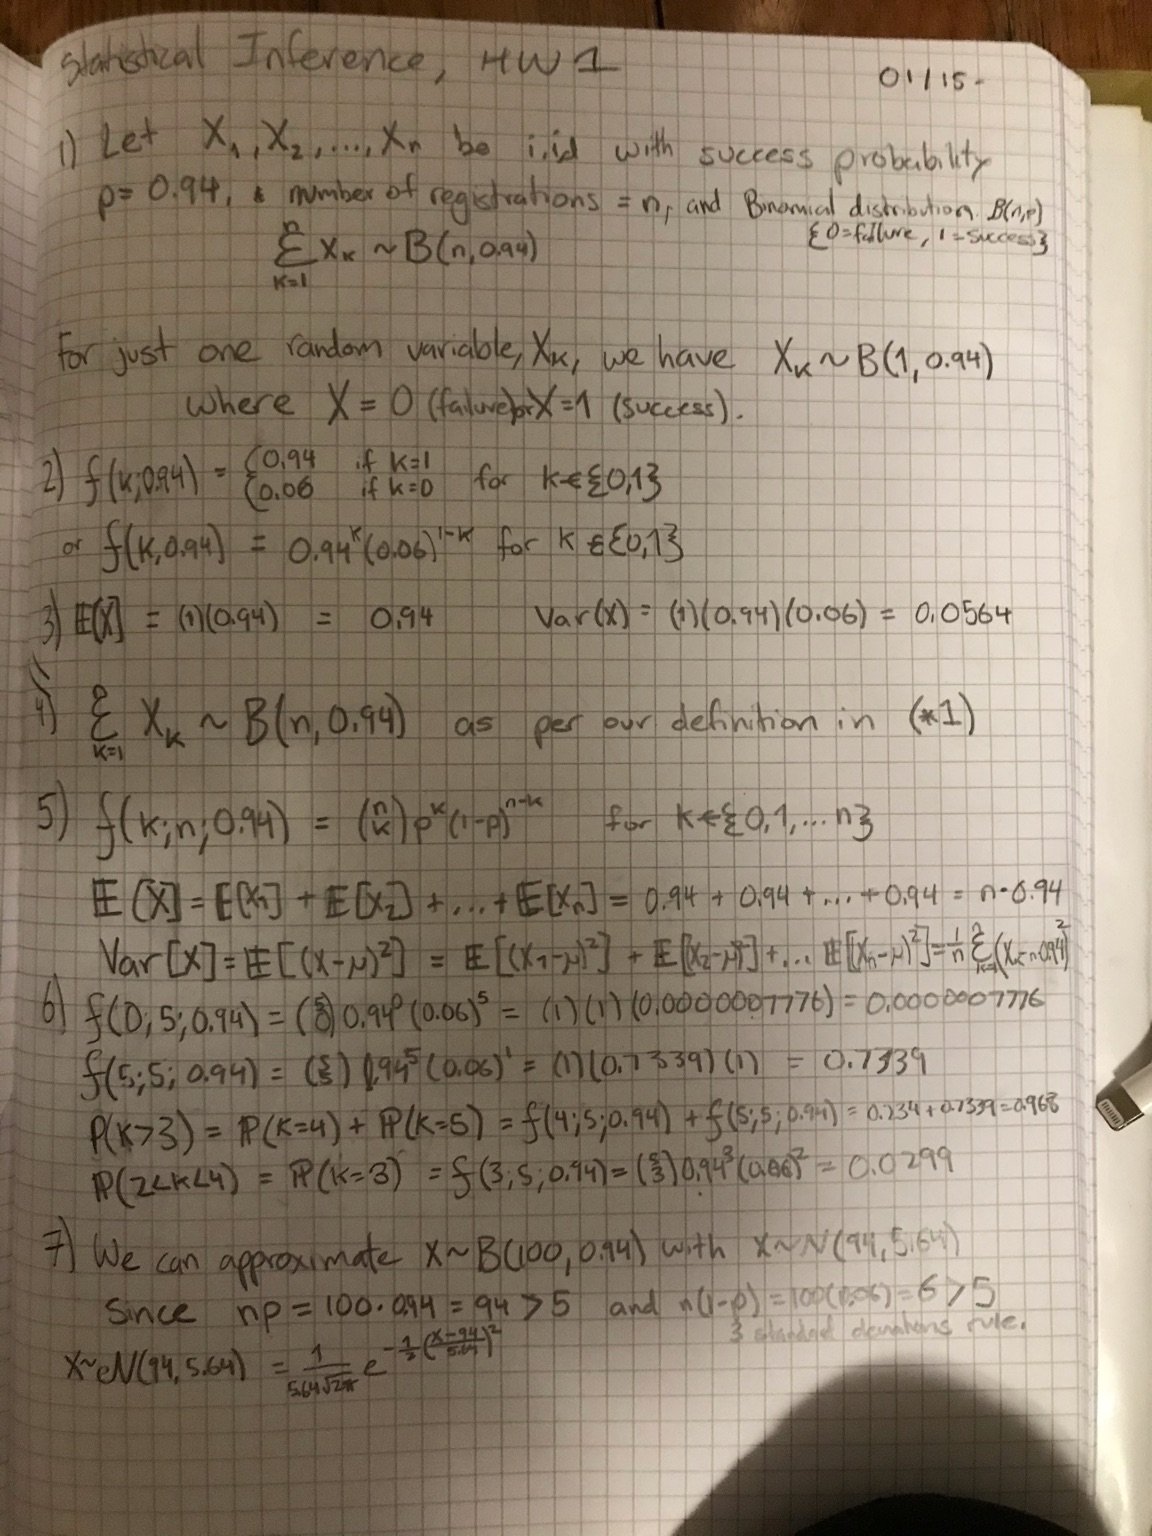 Statistical Inference, HW1
01/15-
1) Let X₁, X₂, ..., Xn be i.i.d with success probability
p = 0.94, & number of registrations = n, and Binomial distribution B(n,p)
{0=failure, 1=success}
n Σ k=1 Xk ~ B(n, 0.94)
For just one random variable, Xk, we have Xk ~ B(1, 0.94)
where X = 0 (failure) or X=1 (success).
2) f(k;0.94) = { 0.94 if k=1
0.06 if k=0 for k∈{0,1}
or f(k,0.94) = 0.94^k (0.06)^1-k for k∈{0,1}
3) E[X] = (1)(0.94) = 0.94 Var(X) = (1)(0.94)(0.06) = 0.0564
4) n Σ k=1 Xk ~ B(n, 0.94) as per our definition in (*1)
5) f(k;n;0.94) = (n k) p^k (1-p)^n-k for k∈{0,1,...n}
E[X] = E[X₁] + E[X₂] + ... + E[Xn] = 0.94 + 0.94 + ... + 0.94 = n·0.94
Var[X] = E[(X-μ)²] = E[(X₁-μ)²] + E[X₂-μ)²] + ... E[Xn-μ)²] = 1/n Σ k=1 (Xk-n·0.94)²
6) f(0;5;0.94) = (5 0) 0.94⁰ (0.06)⁵ = (1)(1)(0.0000007776) = 0.0000007776
f(5;5;0.94) = (5 5) 0.94⁵ (0.06)¹ = (1)(0.7339)(1) = 0.7339
P(k>3) = P(k=4) + P(k=5) = f(4;5;0.94) + f(5;5;0.94) = 0.234 + 0.7339 = 0.968
P(2<k<4) = P(k=3) = f(3;5;0.94) = (5 3) 0.94³ (0.06)² = 0.0299
7) We can approximate X~B(100, 0.94) with X~N(94, 5.64)
Since np = 100·0.94 = 94 > 5 and n(1-p) = 100(0.06) = 6 > 5
3 standard deviations rule.
X~N(94, 5.64) = 1/5.64√2π e^-1/2(x-94/5.64)²